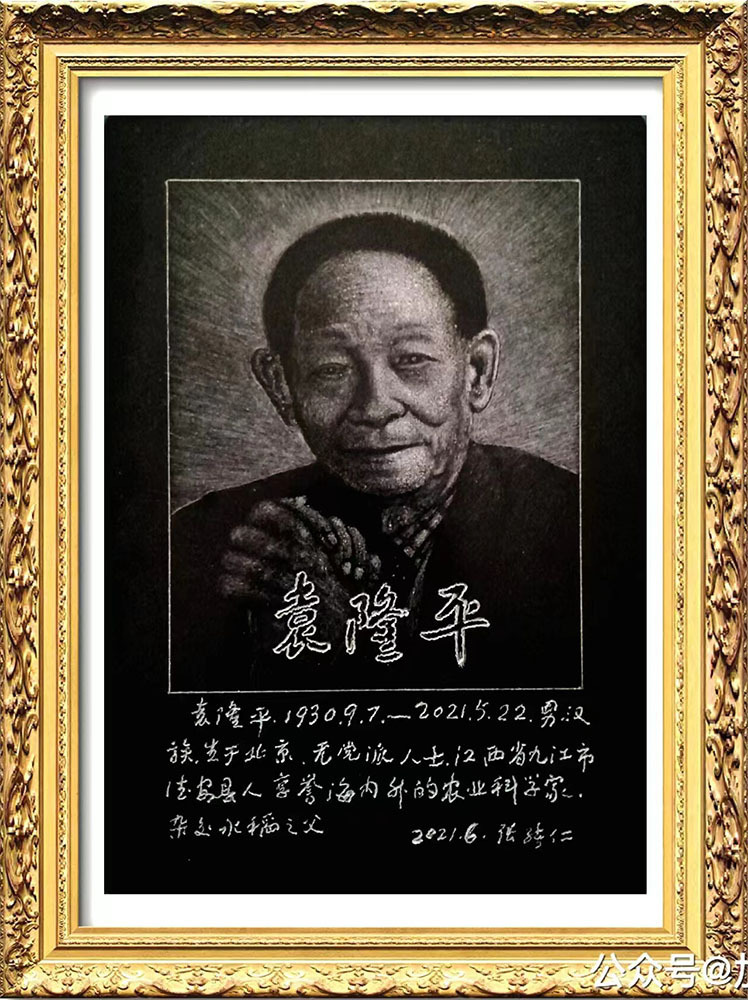 袁隆平
袁隆平.1930.9.7.—2021.5.22.男.汉
族.生于北京、无党派人士.江西省九江市
德安县人享誉海内外的农业科学家.
杂交水稻之父
2021.6.张
公众号@